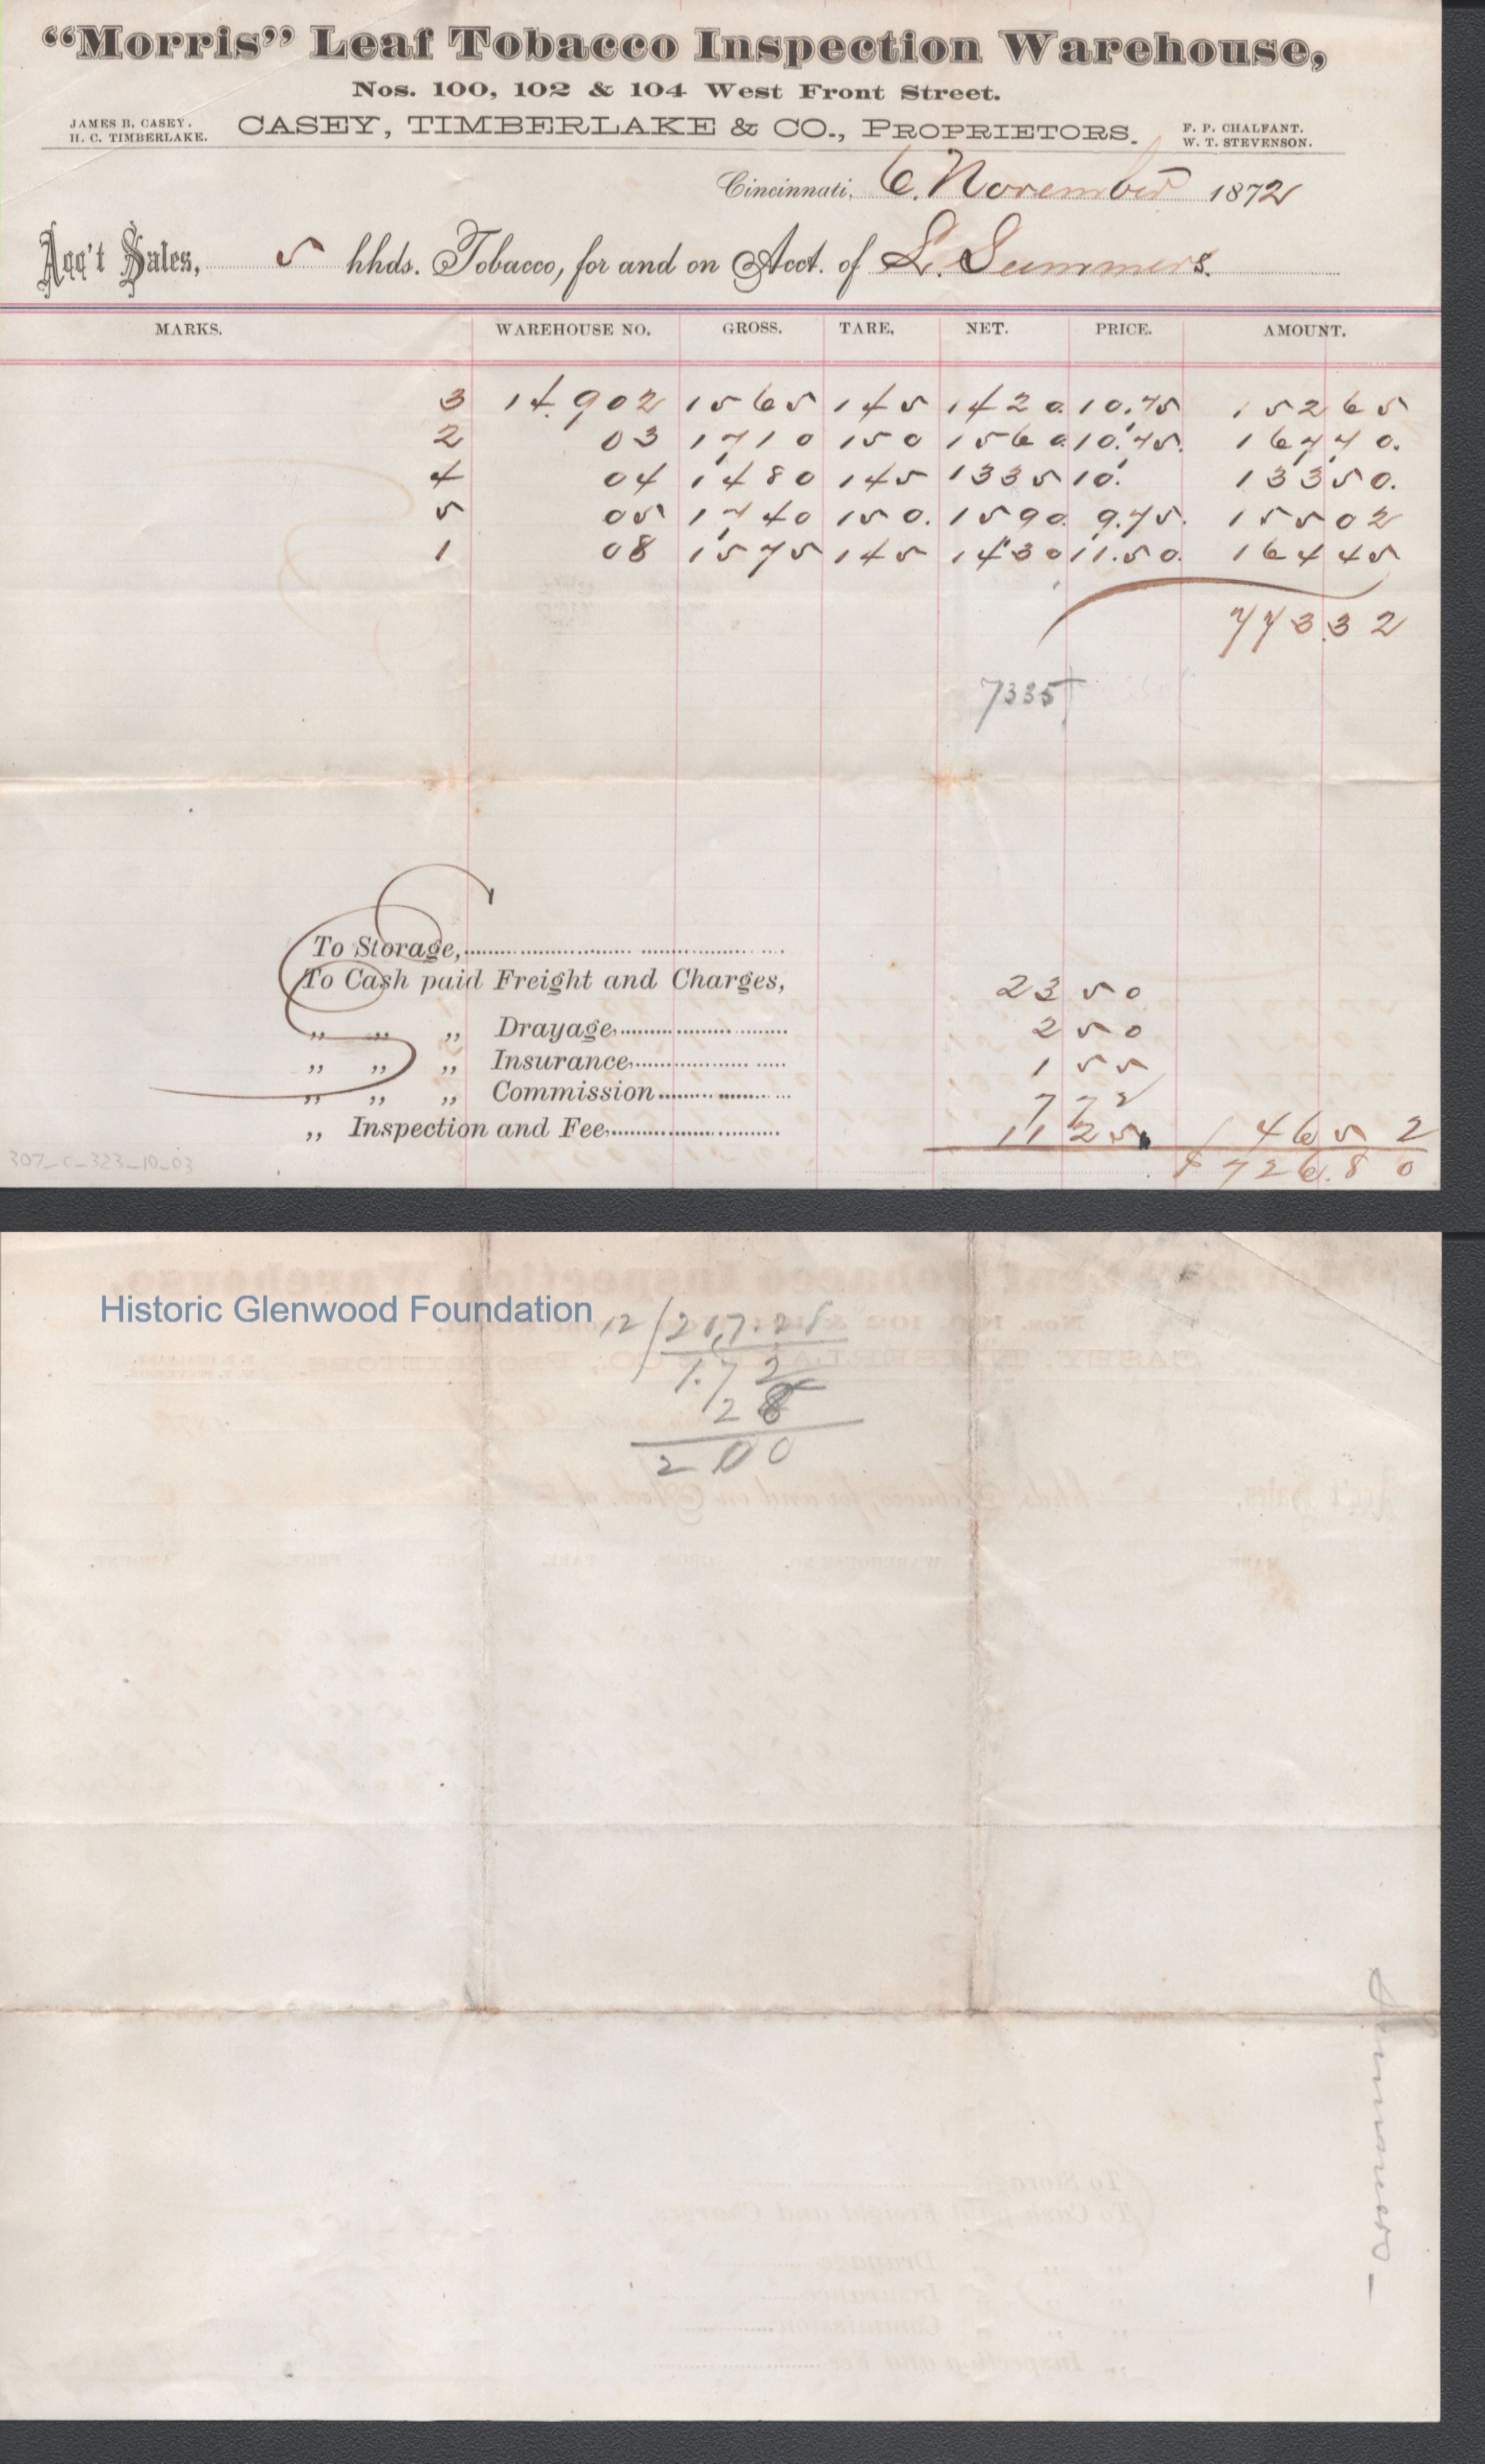 “Morris” Leaf Tobacco Inspection Warehouse,
Nos. 100, 102 & 104 West Front Street.
JAMES B. CASEY.
H. C. TIMBERLAKE.
CASEY, TIMBERLAKE & CO., PROPRIETORS.
F. P. CHALFANT.
W. T. STEVENSON.
Cincinnati, 6. November 1872
Acc't Sales, 5 hhds. Tobacco, for and on Acct. of L. Summers.
MARKS. WAREHOUSE NO. GROSS. TARE. NET. PRICE. AMOUNT.
3 14.902 1565 145 1420 10.75 15265
2 03 1710 150 1560 10.75. 16770.
4 04 1480 145 1335 10. 13350.
5 05 1740 150. 1590. 9.75. 15502
1 08 1575 145 1430 11.50. 16445
773.32
7335
To Storage,
To Cash paid Freight and Charges, 23 50
„ „ „ Drayage, 2 50
„ „ „ Insurance, 1 55
„ „ „ Commission 7 72
„ Inspection and Fee, 11 25 46 52
$ 726.80
307_C_323_10_03
Historic Glenwood Foundation
12/217.21
1.72
28
200
Summers